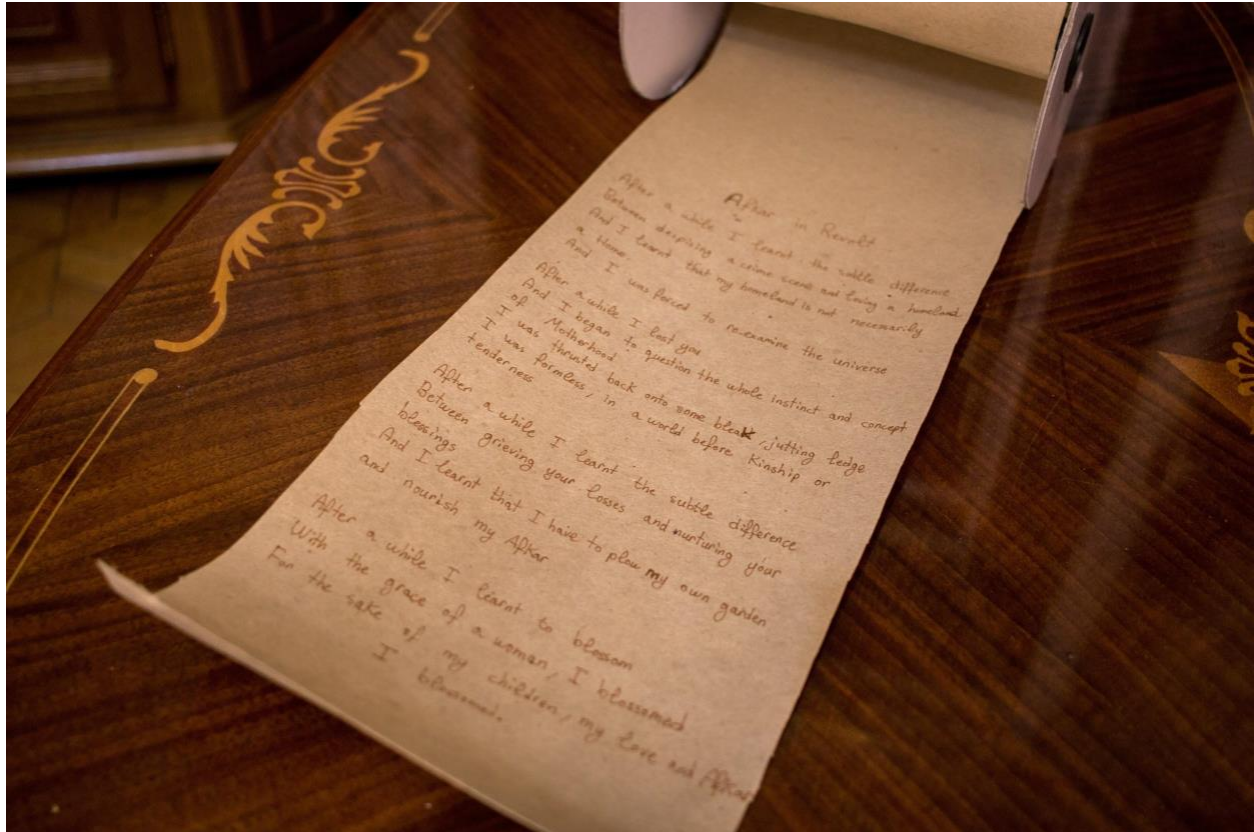 Afkar in Revolt
After a while I learnt the subtle difference
Between despising a crime scene and loving a homeland
And I learnt that my homeland is not necessarily
a Home
And I was forced to re-examine the universe
After a while I lost you
And I began to question the whole instinct and concept
of Motherhood
I was thrusted back onto some bleak, jutting ledge
I was formless, in a world before Kinship or
tenderness
After a while I learnt the subtle difference
Between grieving your losses and nurturing your
blessings
And I learnt that I have to plow my own garden
and nourish my Afkar
After a while I learnt to blossom
With the grace of a woman, I blossomed
For the sake of my children, my love and Afkar
I blossomed.